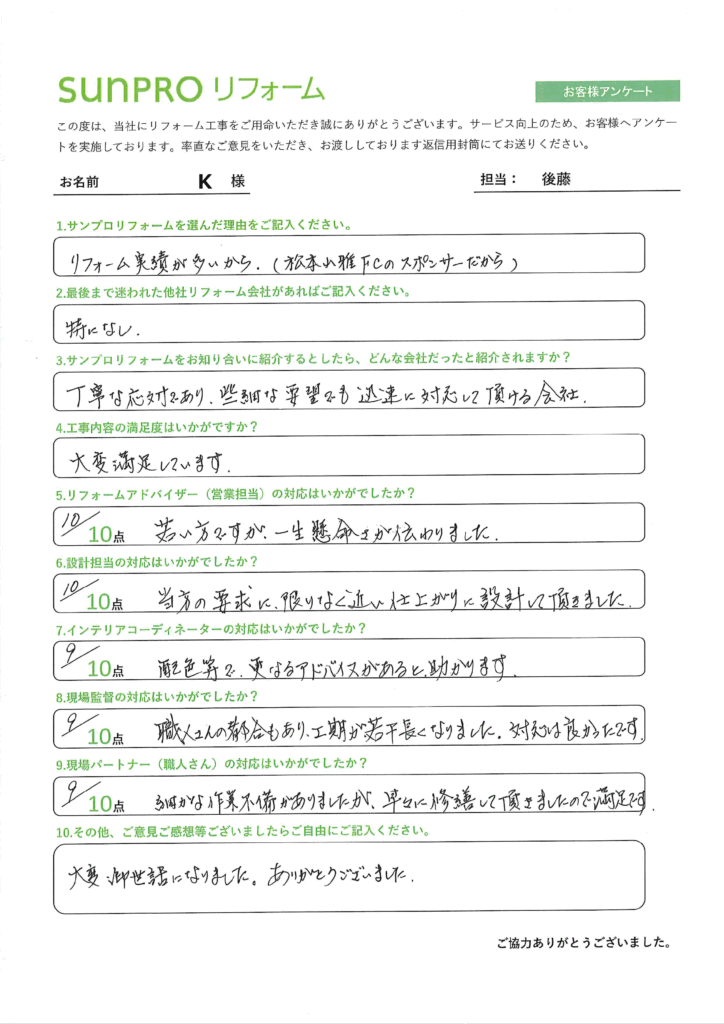 SUNPRO リフォーム
お客様アンケート
この度は、当社にリフォーム工事をご用命いただき誠にありがとうございます。サービス向上のため、お客様へアンケー
トを実施しております。率直なご意見をいただき、お渡ししております返信用封筒にてお送りください。
お名前 K 様 担当： 後藤
1.サンプロリフォームを選んだ理由をご記入ください。
リフォーム実績が多いから.(松本山雅FCのスポンサーだから)
2.最後まで迷われた他社リフォーム会社があればご記入ください。
特になし.
3.サンプロリフォームをお知り合いに紹介するとしたら、どんな会社だったと紹介されますか？
丁寧な応対であり、些細な要望でも迅速に対応して頂ける会社.
4.工事内容の満足度はいかがですか？
大変満足しています.
5.リフォームアドバイザー（営業担当）の対応はいかがでしたか？
10/10点 若い方ですが、一生懸命さが伝わりました.
6.設計担当の対応はいかがでしたか？
10/10点 当方の要求に、限りなく近い仕上がりに設計して頂きました.
7.インテリアコーディネーターの対応はいかがでしたか？
9/10点 配色等で、更なるアドバイスがあると、助かります.
8.現場監督の対応はいかがでしたか？
9/10点 職人さんの都合もあり、工期が若干長くなりました。対応は良かったです.
9.現場パートナー（職人さん）の対応はいかがでしたか？
9/10点 細かな作業不備がありましたが、早々に修繕して頂きましたので満足です.
10.その他、ご意見ご感想等ございましたらご自由にご記入ください。
大変御世話になりました。ありがとうございました.
ご協力ありがとうございました。